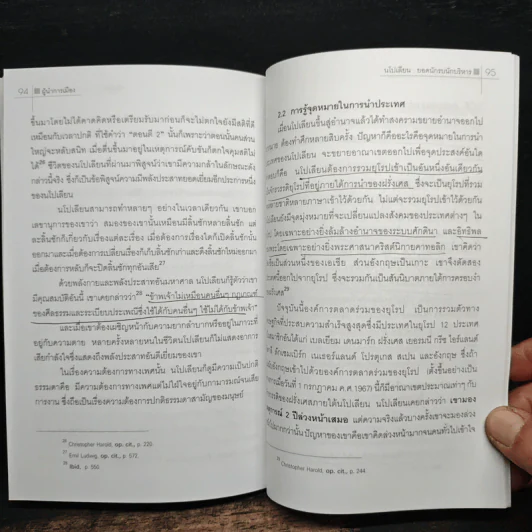 94 ผู้นำการเมือง
ขึ้นมาโดยไม่ได้คาดคิดหรือเตรียมรับมาก่อนก็จะไม่ตกใจยังมีสติที่ดี
เหมือนกับเวลาปกติ ที่ใช้คำว่า "ตอนตี 2" นั้นก็เพราะว่าตอนนั้นคนส่วน
ใหญ่จะหลับสนิท เมื่อตื่นขึ้นมาอยู่ในเหตุการณ์คับขันก็ตกใจคุมสติไม่
ได้ ชีวิตของนโปเลียนที่ผ่านมาพิสูจน์ว่าเขามีความกล้าในลักษณะดัง
กล่าวนี้จริง ซึ่งก็เป็นข้อพิสูจน์ความมีพลังประสาทยอดเยี่ยมอีกประการหนึ่ง
ของนโปเลียน
นโปเลียนสามารถทำหลายๆ อย่างในเวลาเดียวกัน เขาบอก
เลขานุการของเขาว่า สมองของเขานั้นเหมือนมีลิ้นชักหลายลิ้นชัก แต่
ละลิ้นชักก็เกี่ยวกับเรื่องแต่ละเรื่อง เมื่อต้องการเรื่องใดก็เปิดลิ้นชักนั้น
ออกมาและเมื่อต้องการเปลี่ยนเรื่องก็เก็บลิ้นชักเก่าและดึงลิ้นชักใหม่ออกมา
เมื่อต้องการหลับก็จะปิดลิ้นชักทุกอันเสีย27
ด้วยพลังกายและพลังประสาทอันมหาศาล นโปเลียนก็รู้ตัวว่าเขา
มีคุณสมบัติอันนี้ เขาเคยกล่าวว่า28 "ข้าพเจ้าไม่เหมือนคนอื่นๆ กฎเกณฑ์
ของศีลธรรมและระเบียบประเพณีซึ่งใช้ได้กับคนอื่นๆ ใช้ไม่ได้กับข้าพเจ้า"
และเมื่อเขาต้องเผชิญหน้ากับความยากลำบากหรืออยู่ในภาวะที่
อยู่กับความตาย หลายครั้งหลายหนในชีวิตนโปเลียนก็ไม่แสดงอาการ
เสียกำลังใจซึ่งแสดงถึงพลังประสาทอันดีเยี่ยมของเขา
ในเรื่องความต้องการทางเพศนั้น นโปเลียนก็ดูมีความเป็นปกติ
ธรรมดาคือ มีความต้องการทางเพศแต่ไม่ใช่อยู่กับกามารมณ์จนเสีย
การงาน ซึ่งถือเป็นเรื่องความต้องการปกติธรรมดาสามัญของมนุษย์
26 Christopher Herold, op. cit., p. 235.
27 Emil Ludwig, op. cit., p. 572.
28 Ibid., p. 550.
นโปเลียน ยอดนักรบนักบริหาร 95
2.2 การรู้จุดหมายในการนำประเทศ
เมื่อนโปเลียนขึ้นสู่อำนาจแล้วได้ทำสงครามขยายอำนาจออกไป
ต้องทำศึกหลายสิบครั้ง ปัญหาก็คืออะไรคือจุดหมายในการนำ
ของนโปเลียน จะขยายอาณาเขตออกไปเพื่อจุดประสงค์อันใด
คือ นโปเลียนต้องการรวมยุโรปเข้าเป็นอันหนึ่งอันเดียวกัน
ยุโรปที่อยู่ภายใต้การนำของฝรั่งเศส ซึ่งจะเป็นยุโรปที่รวม
ชาติหลายภาษาเข้าไว้ด้วยกัน ไม่แต่จะรวมยุโรปเข้าไว้ด้วยกัน
ยังมีจุดมุ่งหมายที่จะเปลี่ยนแปลงสังคมของประเทศต่างๆ ใน
โดยเฉพาะอย่างยิ่งล้มล้างอำนาจของระบบศักดินา และอิทธิพล
โดยเฉพาะอย่างยิ่งพระศาสนาคริสต์นิกายคาทอลิก เขาคิดว่า
เป็นส่วนหนึ่งของเอเชีย ส่วนอังกฤษเป็นเกาะ เขาจึงตัดสอง
ออกไปจากยุโรป ซึ่งจะรวมกันเป็นสันนิบาตภายใต้การครอบงำ
29
ปัจจุบันนี้องค์การตลาดร่วมของยุโรป เป็นการรวมตัวทาง
ที่ประสบความสำเร็จสูงสุดซึ่งมีประเทศในยุโรป 12 ประเทศ
ได้แก่ เบลเยียม เดนมาร์ก ฝรั่งเศส เยอรมนี กรีซ ไอร์แลนด์
ลักเซมเบิร์ก เนเธอร์แลนด์ โปรตุเกส สเปน และอังกฤษ ซึ่งถ้า
อังกฤษเข้าไปด้วยองค์การตลาดร่วมของยุโรป (ตั้งขึ้นอย่างเป็น
เมื่อวันที่ 1 กรกฎาคม ค.ศ.1967) นี้ก็มีอาณาเขตประมาณเท่าๆ กับ
ของฝรั่งเศสภายใต้นโปเลียน นโปเลียนเคยกล่าวว่า เขามอง
2 ปีล่วงหน้าเสมอ แต่ความจริงแล้วบางครั้งเขาจะมองล่วง
มากกว่านั้น ปัญหาของเขาคือเขาคิดล่วงหน้ามากจนคนทั่วไปเข้าใจ
29 Christopher Herold, op. cit., p. 244.